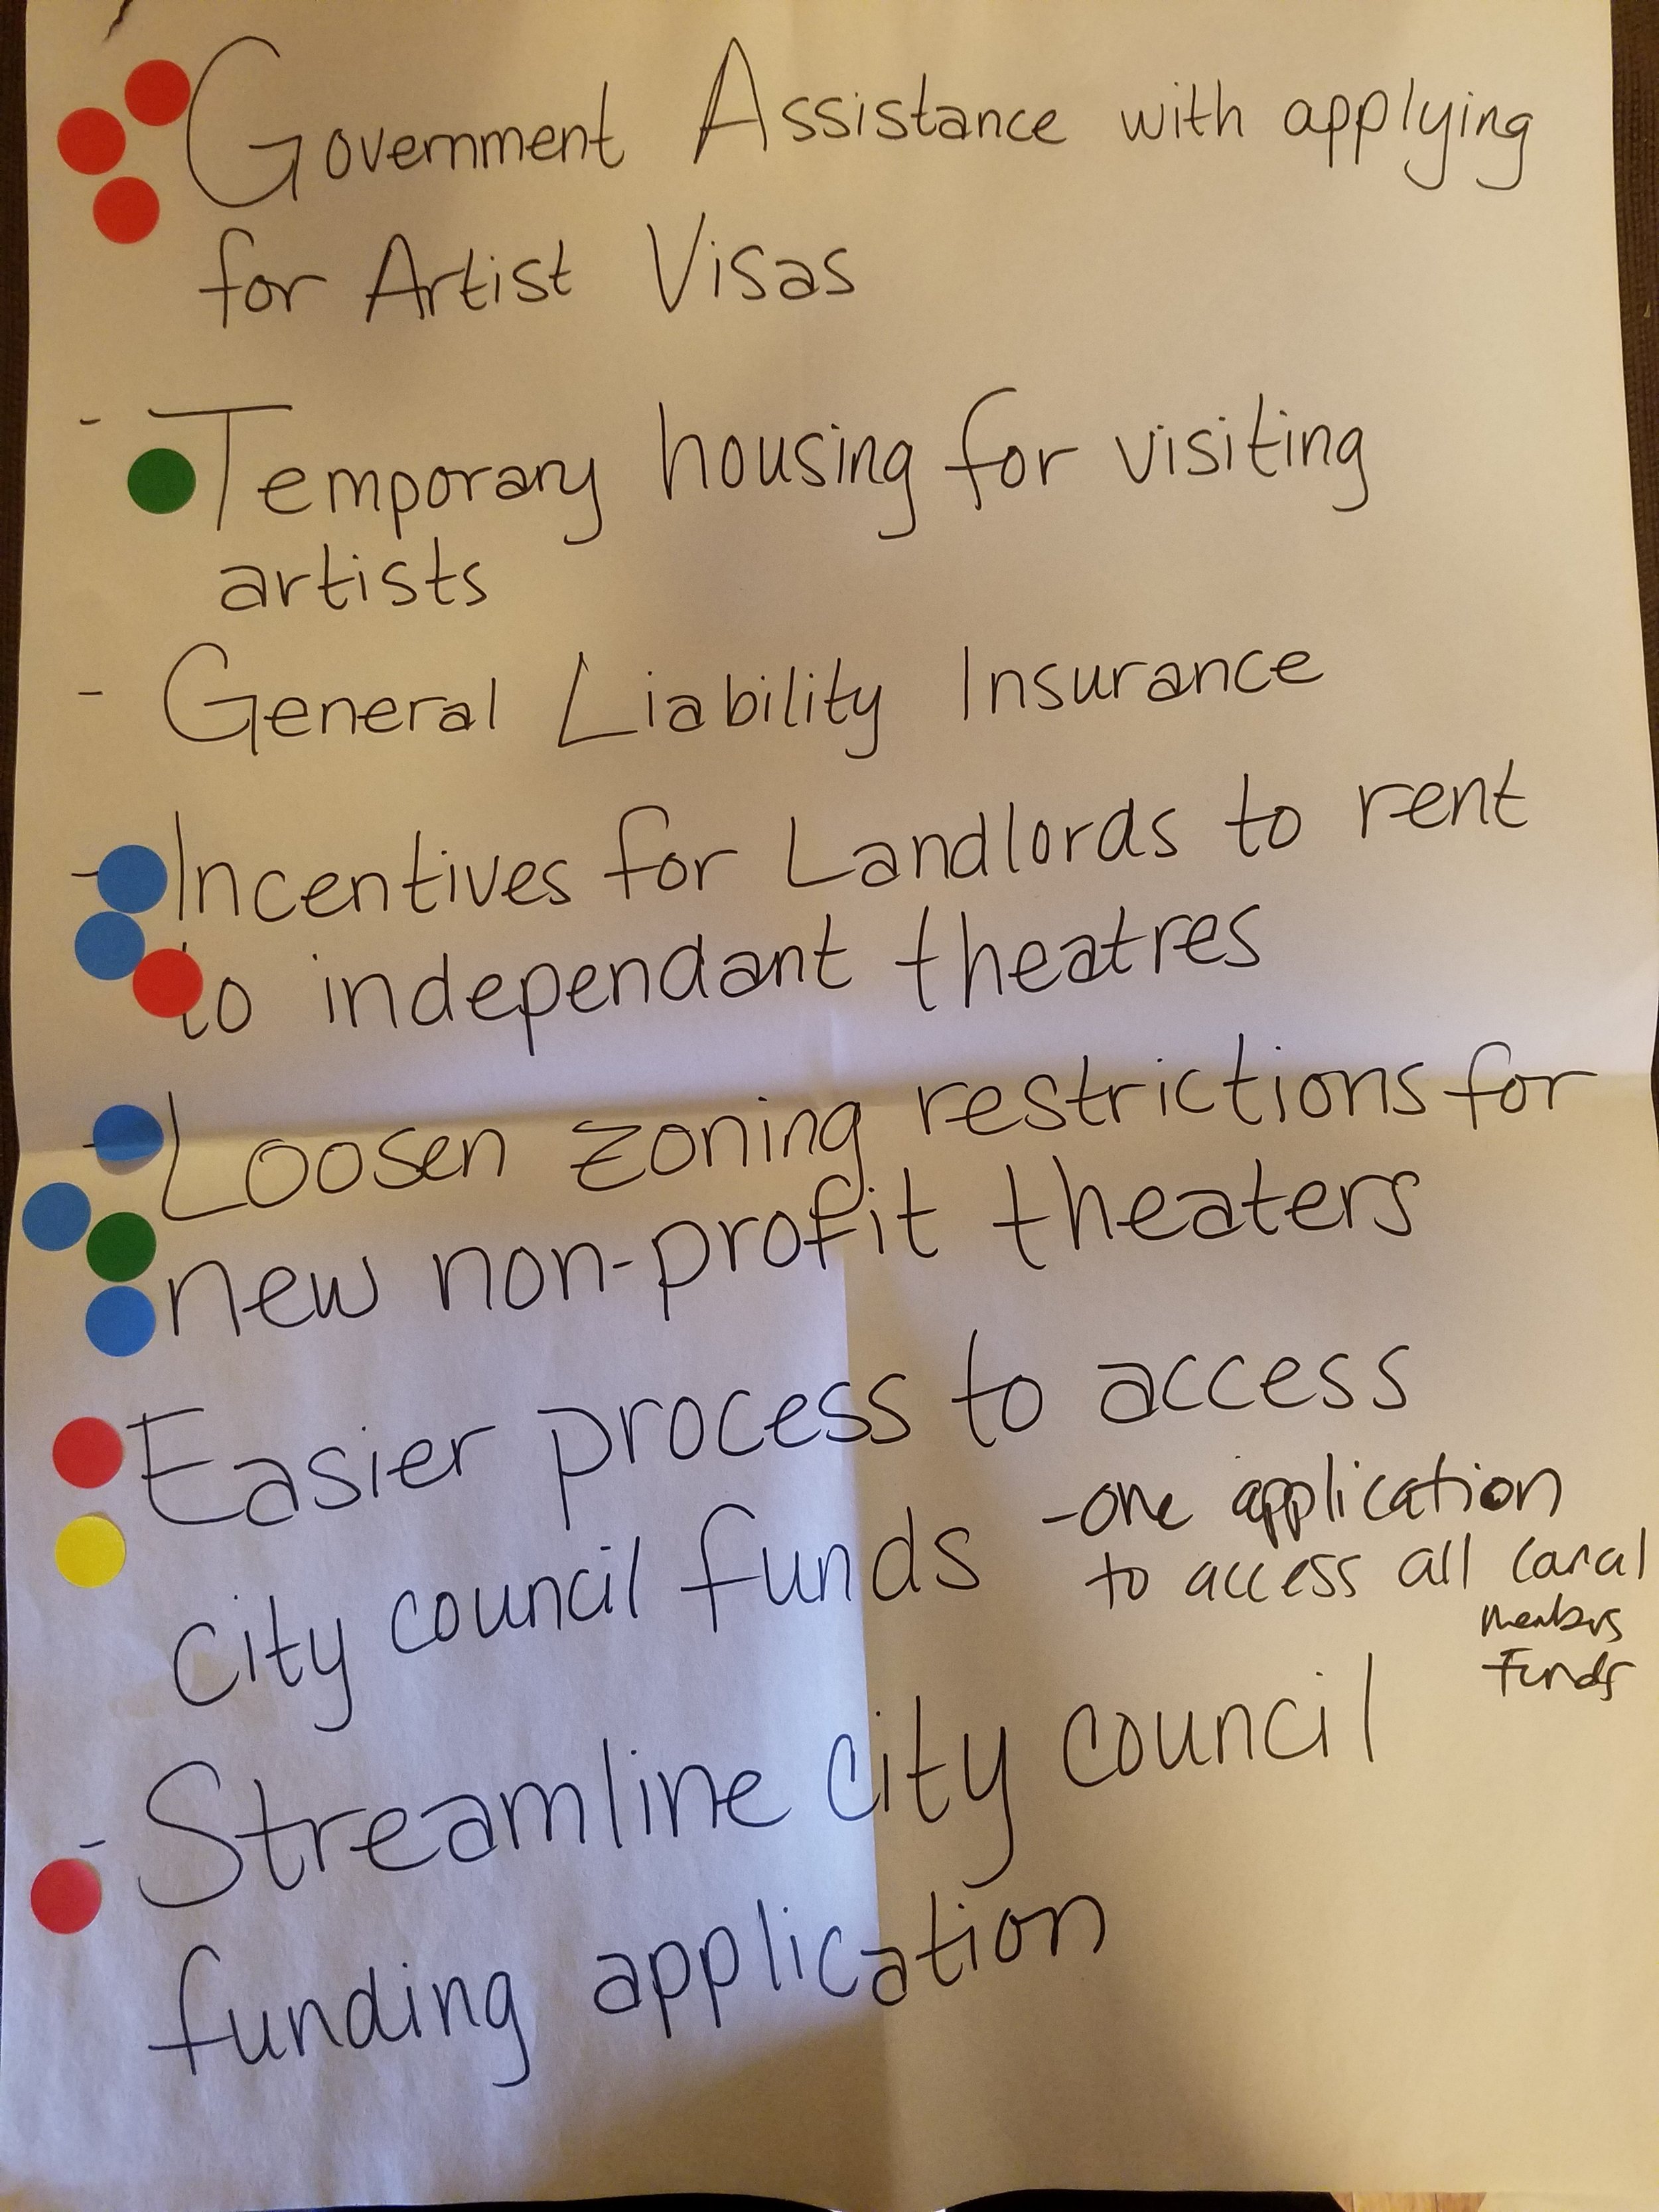 Government Assistance with applying
for Artist Visas
- Temporary housing for visiting
artists
- General Liability Insurance
- Incentives for Landlords to rent
to independant theatres
- Loosen zoning restrictions for
new non-profit theaters
Easier process to access
city council funds
- one application
to access all
members
funds
- Streamline city council
funding application